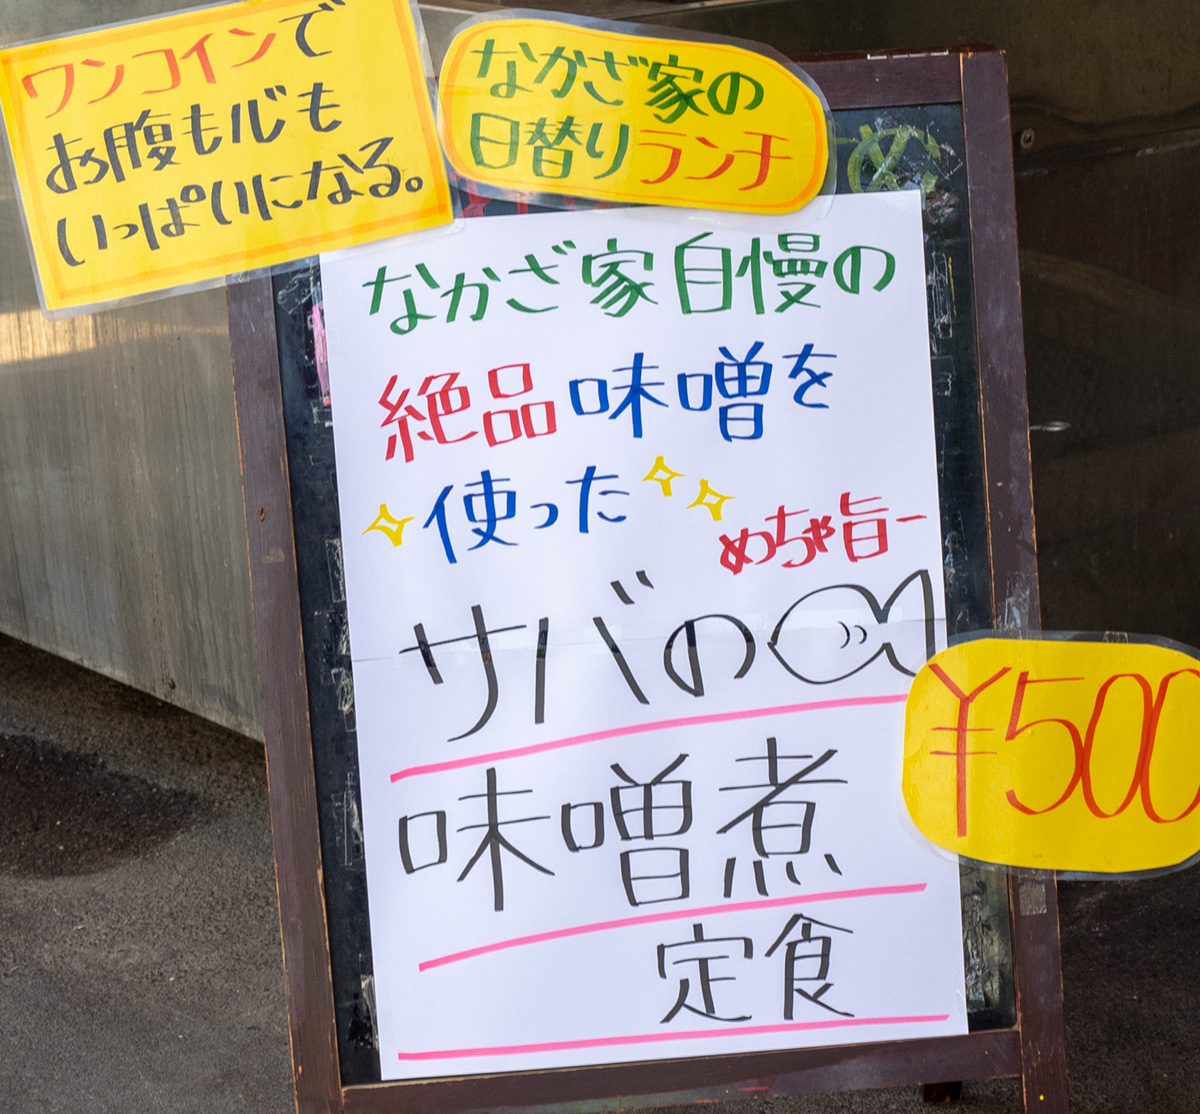 ワンコインで
お腹も心も
いっぱいになる。
なかざ家の
日替りランチ
なかざ家自慢の
絶品味噌を
使った
めちゃ旨ー
サバの
味噌煮
定食
¥500